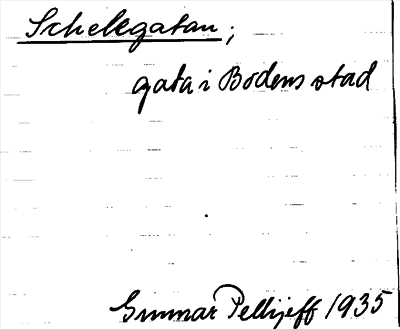 Schelegatan;
gata i Bodens stad
Gunnar Pellijeff 1935